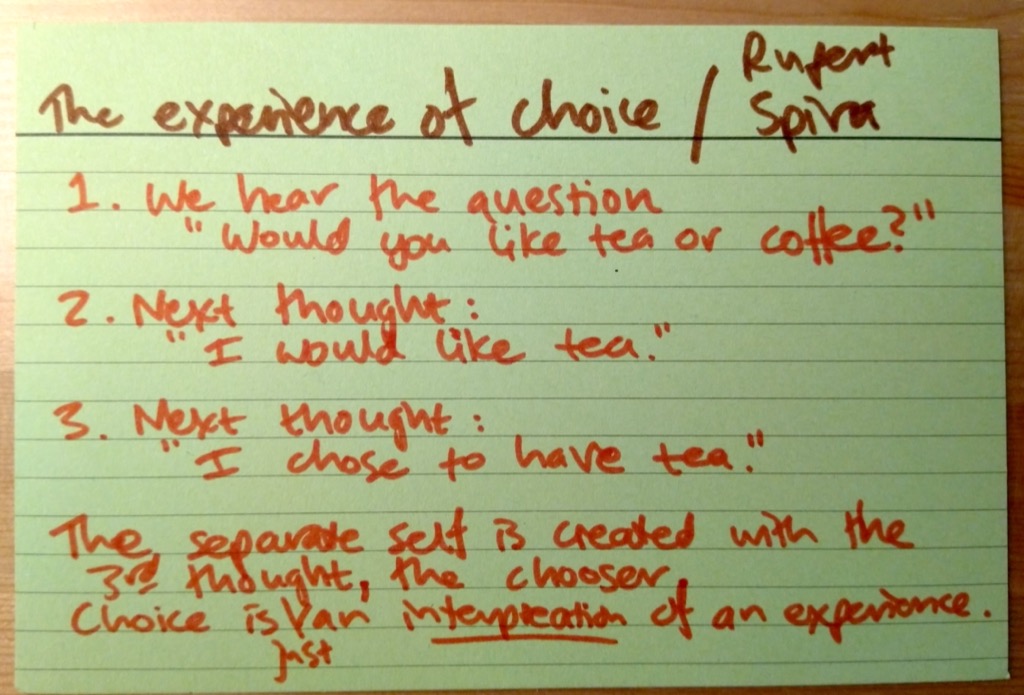 The experience of choice / Rupert Spira
1. We hear the question
"Would you like tea or coffee?"
2. Next thought:
"I would like tea."
3. Next thought:
"I chose to have tea."
The separate self is created with the
3rd thought, the chooser.
Choice is just an interpreation of an experience.